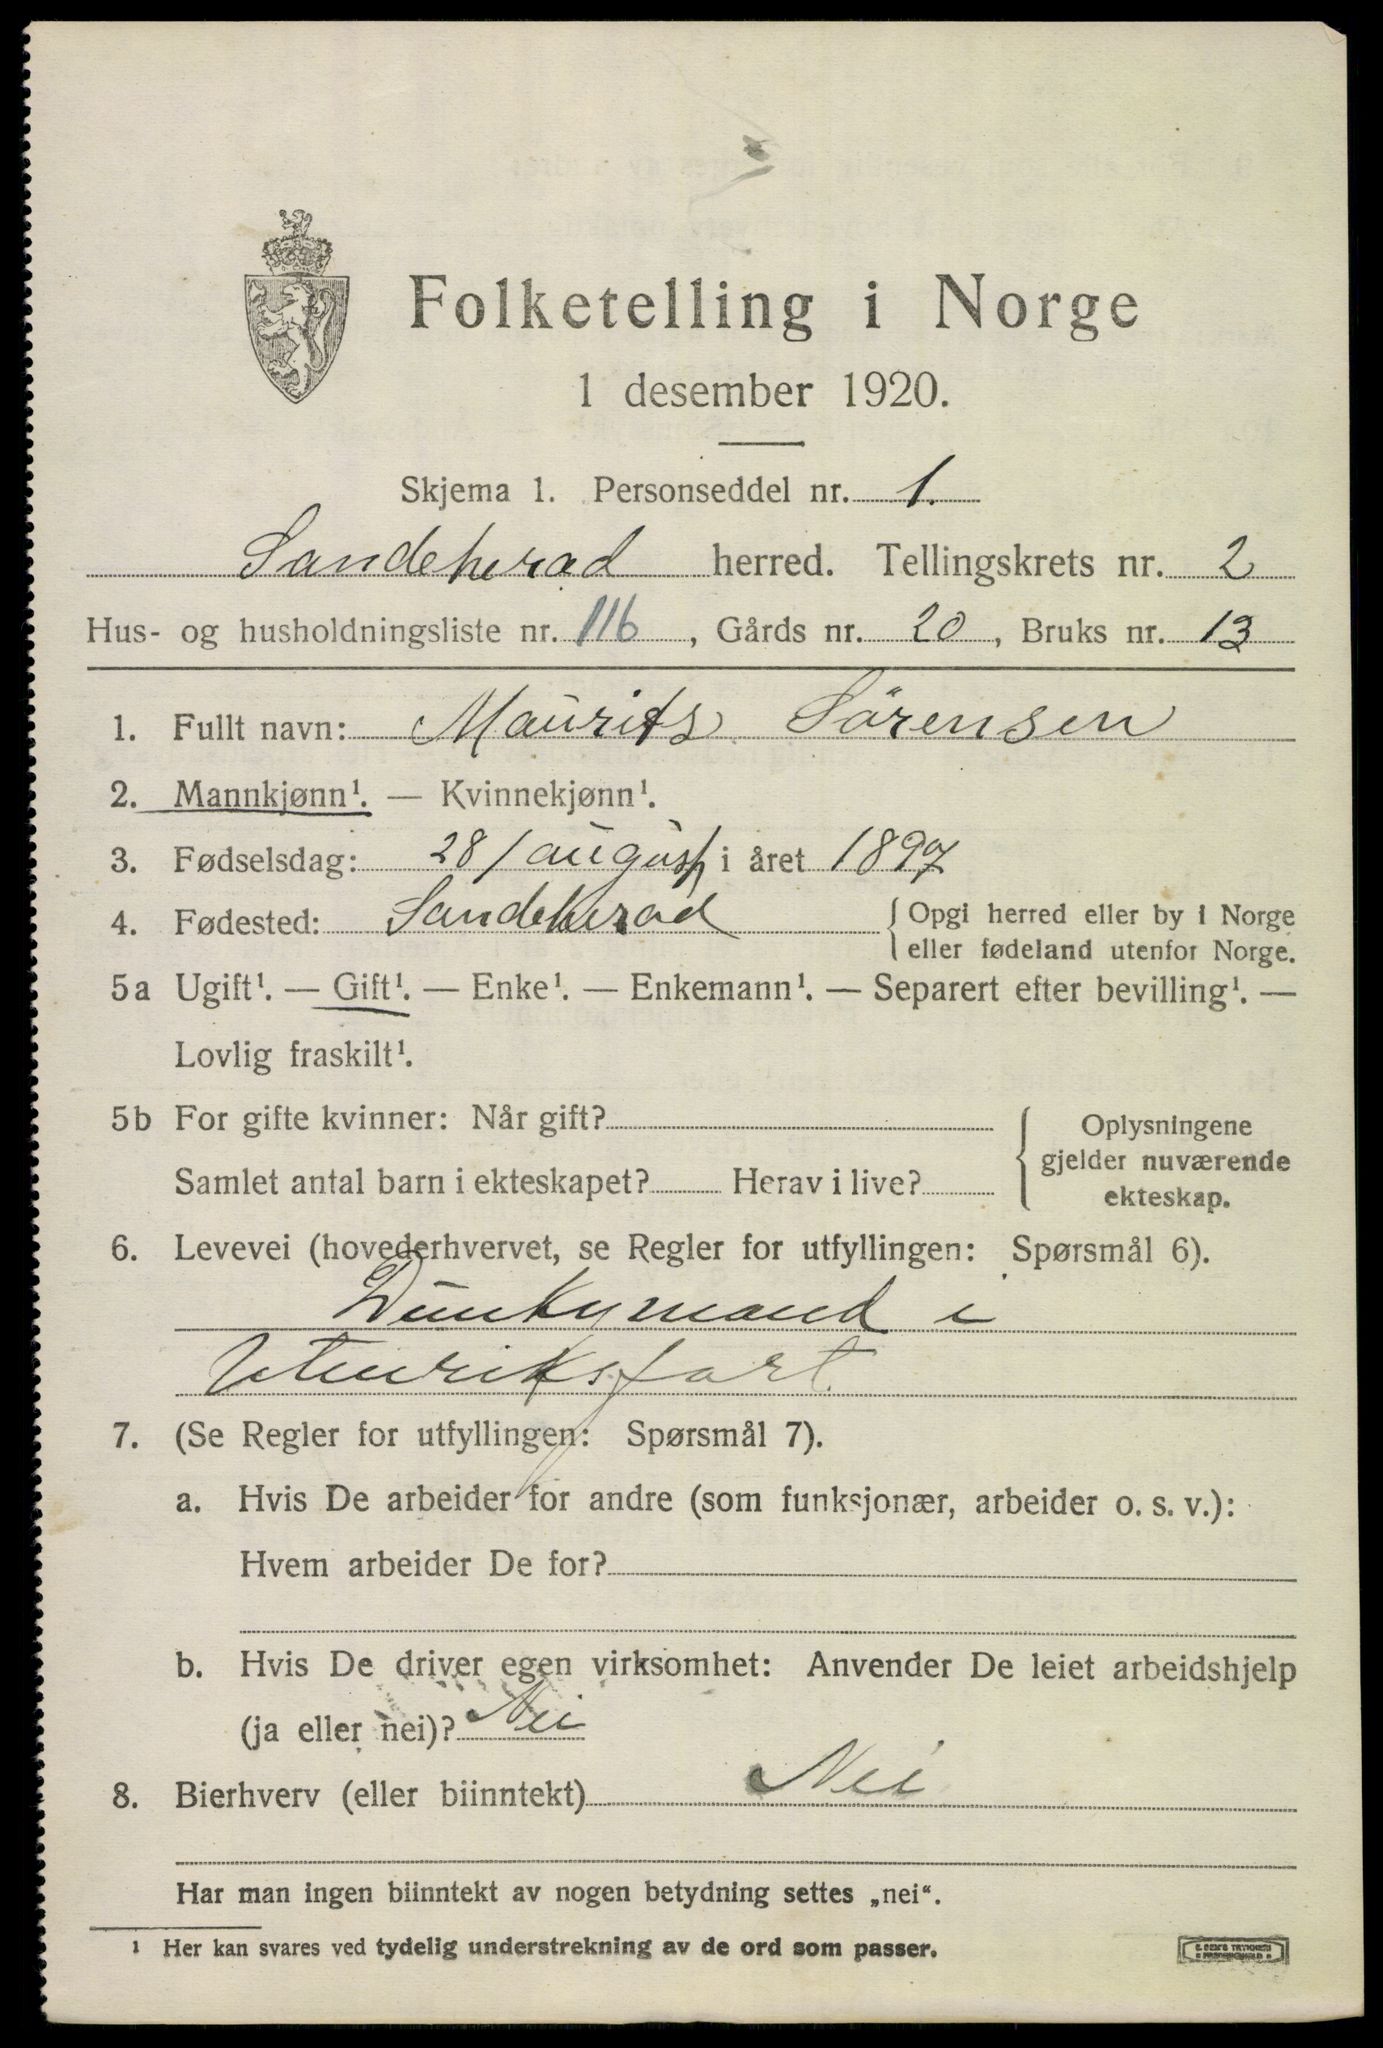 Folketelling i Norge
1 desember 1920.
Skjema 1. Personseddel nr. 1.
Sandeherad herred. Tellingskrets nr. 2
Hus- og husholdningsliste nr. 116, Gårds nr. 20, Bruks nr. 13
1. Fullt navn: Maurits Sörensen
2. Mannkjønn¹. — Kvinnekjønn¹.
3. Fødselsdag: 28/august i året 1897
4. Fødested: Sandeherad { Opgi herred eller by i Norge
eller fødeland utenfor Norge.
5a Ugift¹. — Gift¹. — Enke¹. — Enkemann¹. — Separert efter bevilling¹. —
Lovlig fraskilt¹.
5b For gifte kvinner: Når gift?
Samlet antal barn i ekteskapet? Herav i live?
{ Oplysningene
gjelder nuværende
ekteskap.
6. Levevei (hovederhvervet, se Regler for utfyllingen: Spørsmål 6).
Dunkymand i
Utenriksfart
7. (Se Regler for utfyllingen: Spørsmål 7).
a. Hvis De arbeider for andre (som funksjonær, arbeider o. s. v.):
Hvem arbeider De for?
b. Hvis De driver egen virksomhet: Anvender De leiet arbeidshjelp
(ja eller nei)? Nei
8. Bierhverv (eller biinntekt) Nei
Har man ingen biinntekt av nogen betydning settes „nei“.
¹ Her kan svares ved tydelig understrekning av de ord som passer.